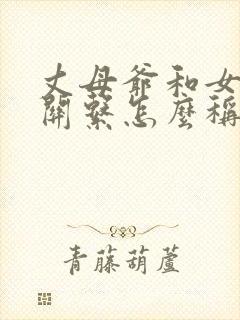 丈母爺和女
關繫怎麼稱
青藤葫蘆